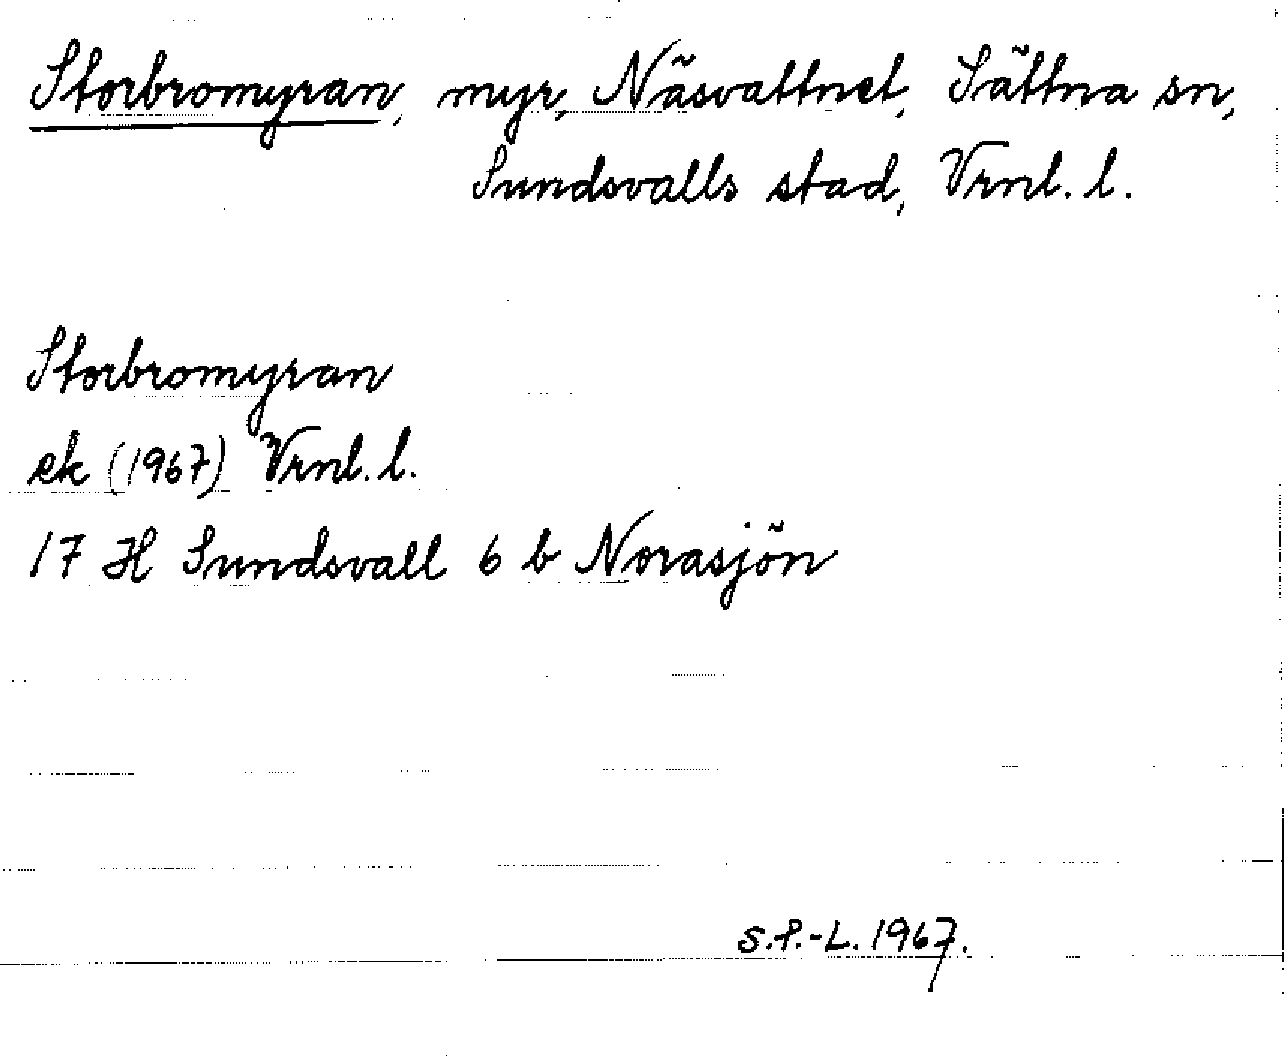 Storbromyran, myr, Näsvattnet, Sättna sn,
Sundsvalls stad, Vrnl. l.
Storbromyran
ek (1967) Vrnl. l.
17 H Sundsvall 6 b Norasjön
S.P.-L. 1967.